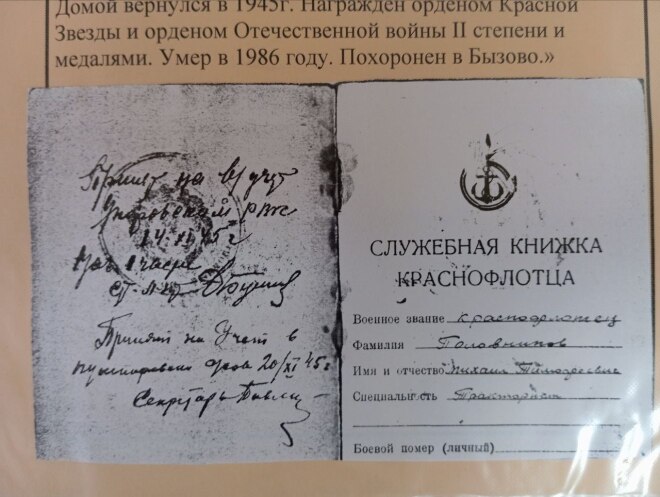 Домой вернулся в 1945г. Награжден орденом Красной
Звезды и орденом Отечественной войны II степени и
медалями. Умер в 1986 году. Похоронен в Бызово.»
Принят на в/учет
РВК
Нач 1 части
ст. л-т
Принят на учет в
20/XI 45г
Секретарь
СЛУЖЕБНАЯ КНИЖКА
КРАСНОФЛОТЦА
Военное звание краснофлотец
Фамилия Головников
Имя и отчество Михаил Тимофеевич
Специальность Тракторист
Боевой номер (личный)